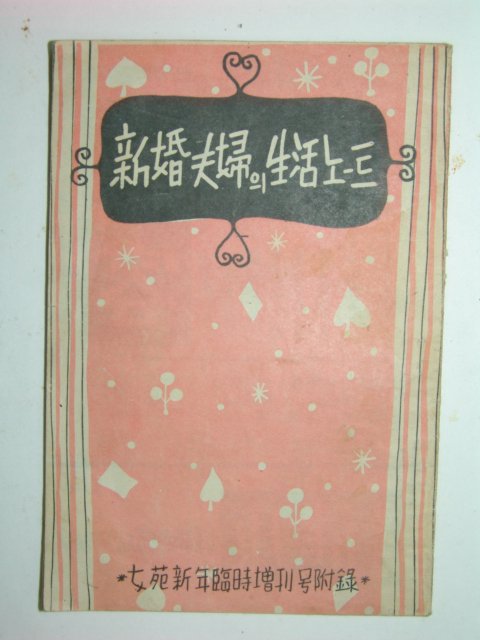 新婚夫婦의 生活노-트
*女苑新年臨時增刊号附錄*